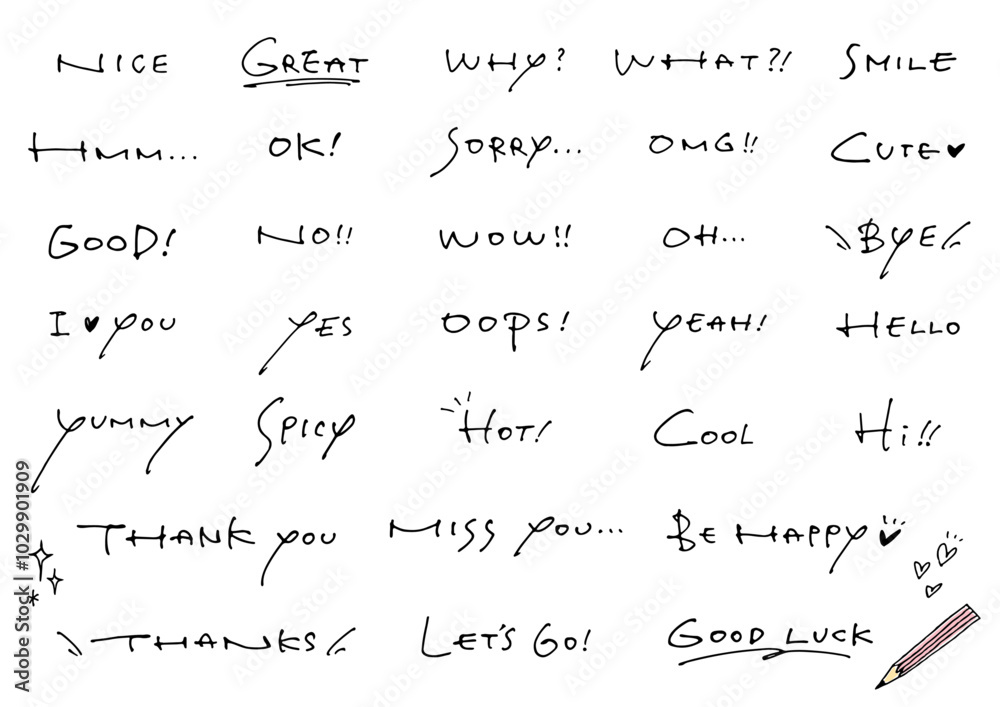 NICE GREAT WHY? WHAT?! SMILE
HMM... OK! SORRY... OMG!! CUTE♥
GOOD! NO!! WOW!! OH... \BYE/
I ♥ YOU YES OOPS! YEAH! HELLO
YUMMY SPICY HOT! COOL Hi!!
THANK YOU MISS YOU... BE HAPPY♥
\THANKS/ LET'S GO! GOOD LUCK
Adobe Stock | #1029901909